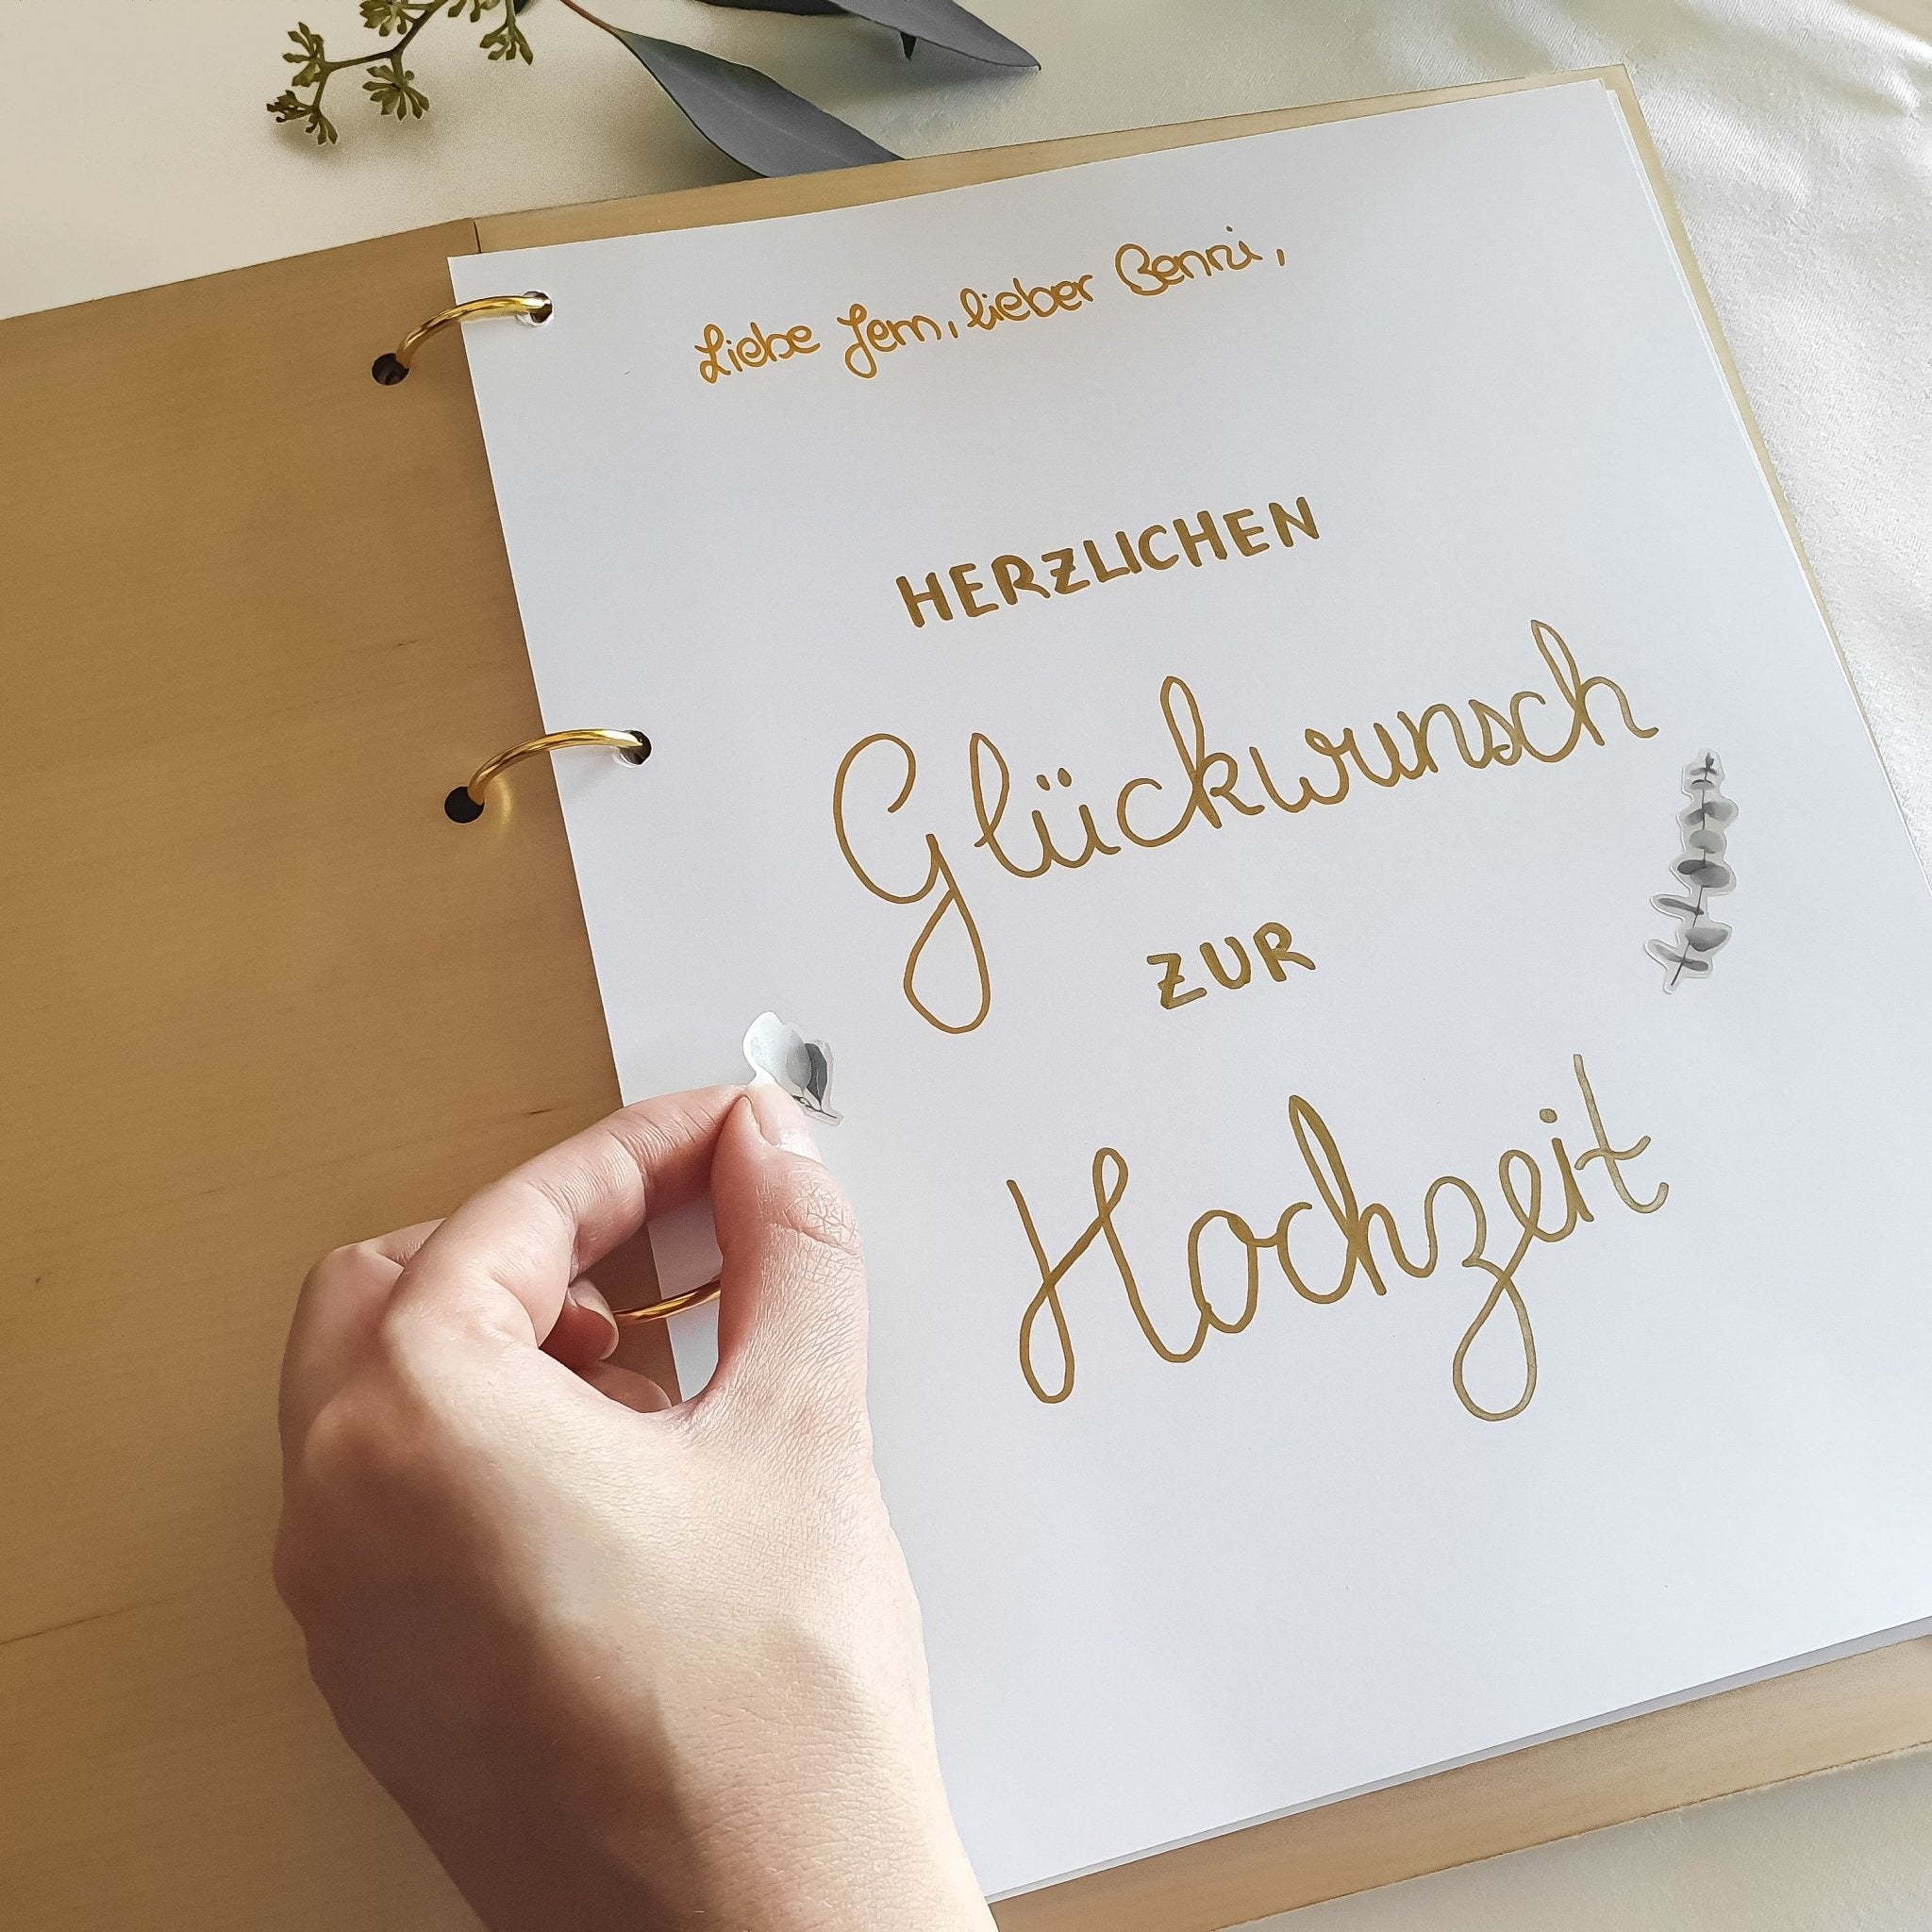 Liebe Jem, lieber Benni,
HERZLICHEN
Glückwunsch
ZUR
Hochzeit